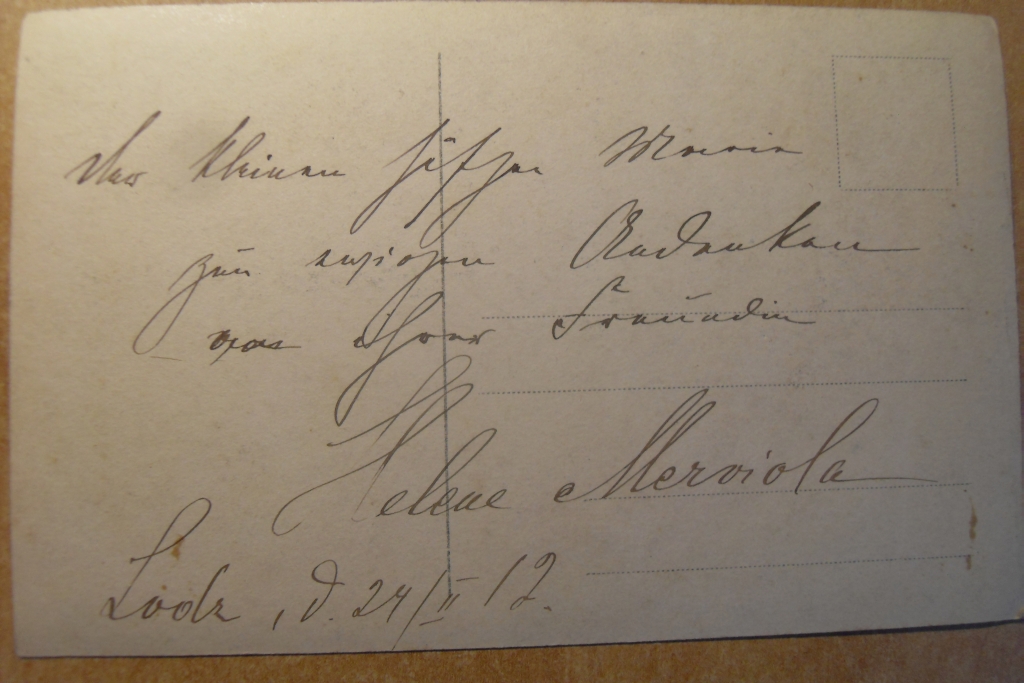 Der kleinen süßen Marie
zum ewigen Andenken
von Ihrer Freundin
Helene Merviola
Lodz, d. 24/II 12.